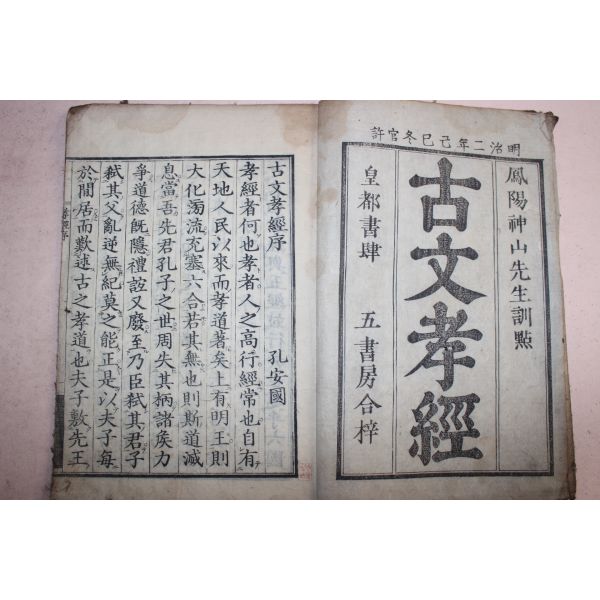 明治二年己巳冬官許
鳳陽神山先生訓點
古文孝經
皇都書肆 五書房合梓
古文孝經序 孔安國
孝經者何也孝者人之高行經常也自有
天地人民以來而孝道著矣上有明王則
大化濁流充塞六合若其無也則斯道滅
息當吾先君孔子之世周失其柄諸侯力
爭道德既隱禮誼又廢至乃臣弑其君子
弑其父亂逆無紀莫之能正是以夫子每
於閒居而歎述古之孝道也夫子敷先王